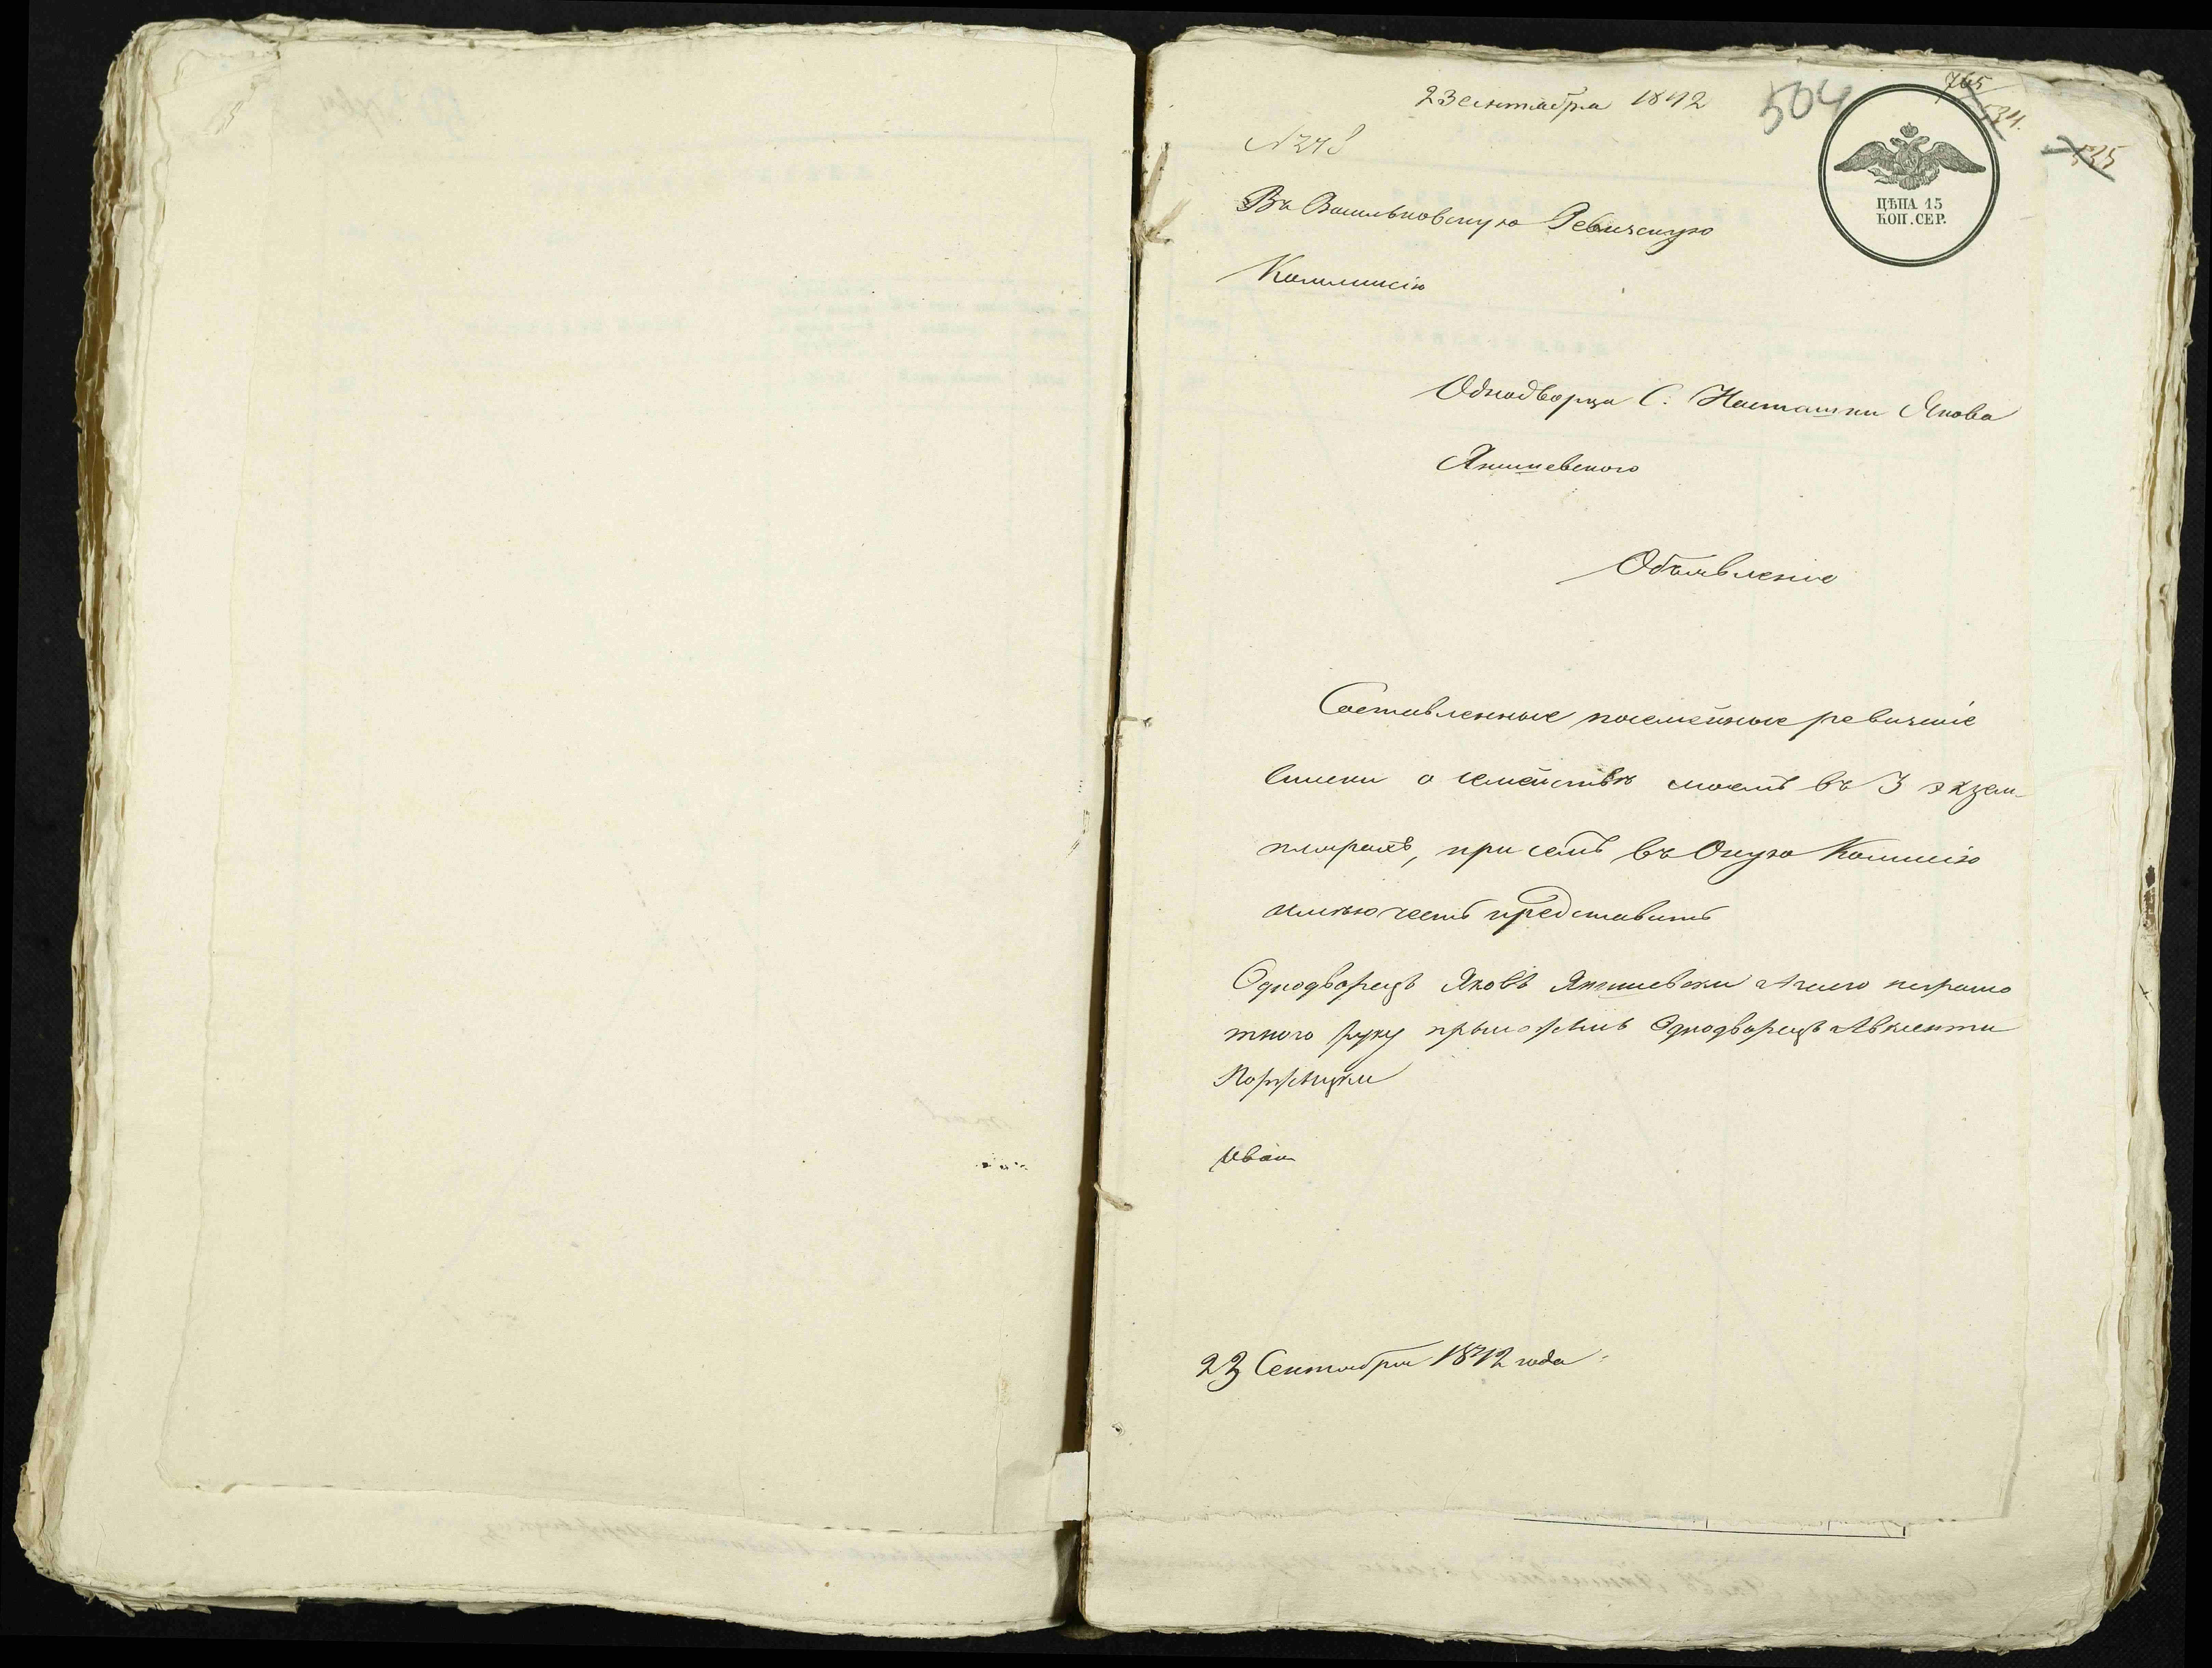 23 Сентября 1842
504
765
534.
535
N 248
ЦѢНА 15
КОП. СЕР.
Въ Васильковскую Ревизскую
Коммисію
Однодворца С. Насташки Якова
Янишевского
Объявленіе
Составленные посемейные ревизскіе
списки о семействѣ моемъ въ 3 экзем-
плярахъ, при семъ въ Оную Комисію
имѣю честь представить
Однодворецъ Яковъ Янишевски а за его неграмо
тного руку прыложилъ Однодворецъ Авксенти
Иван
23 Сентября 1842 года